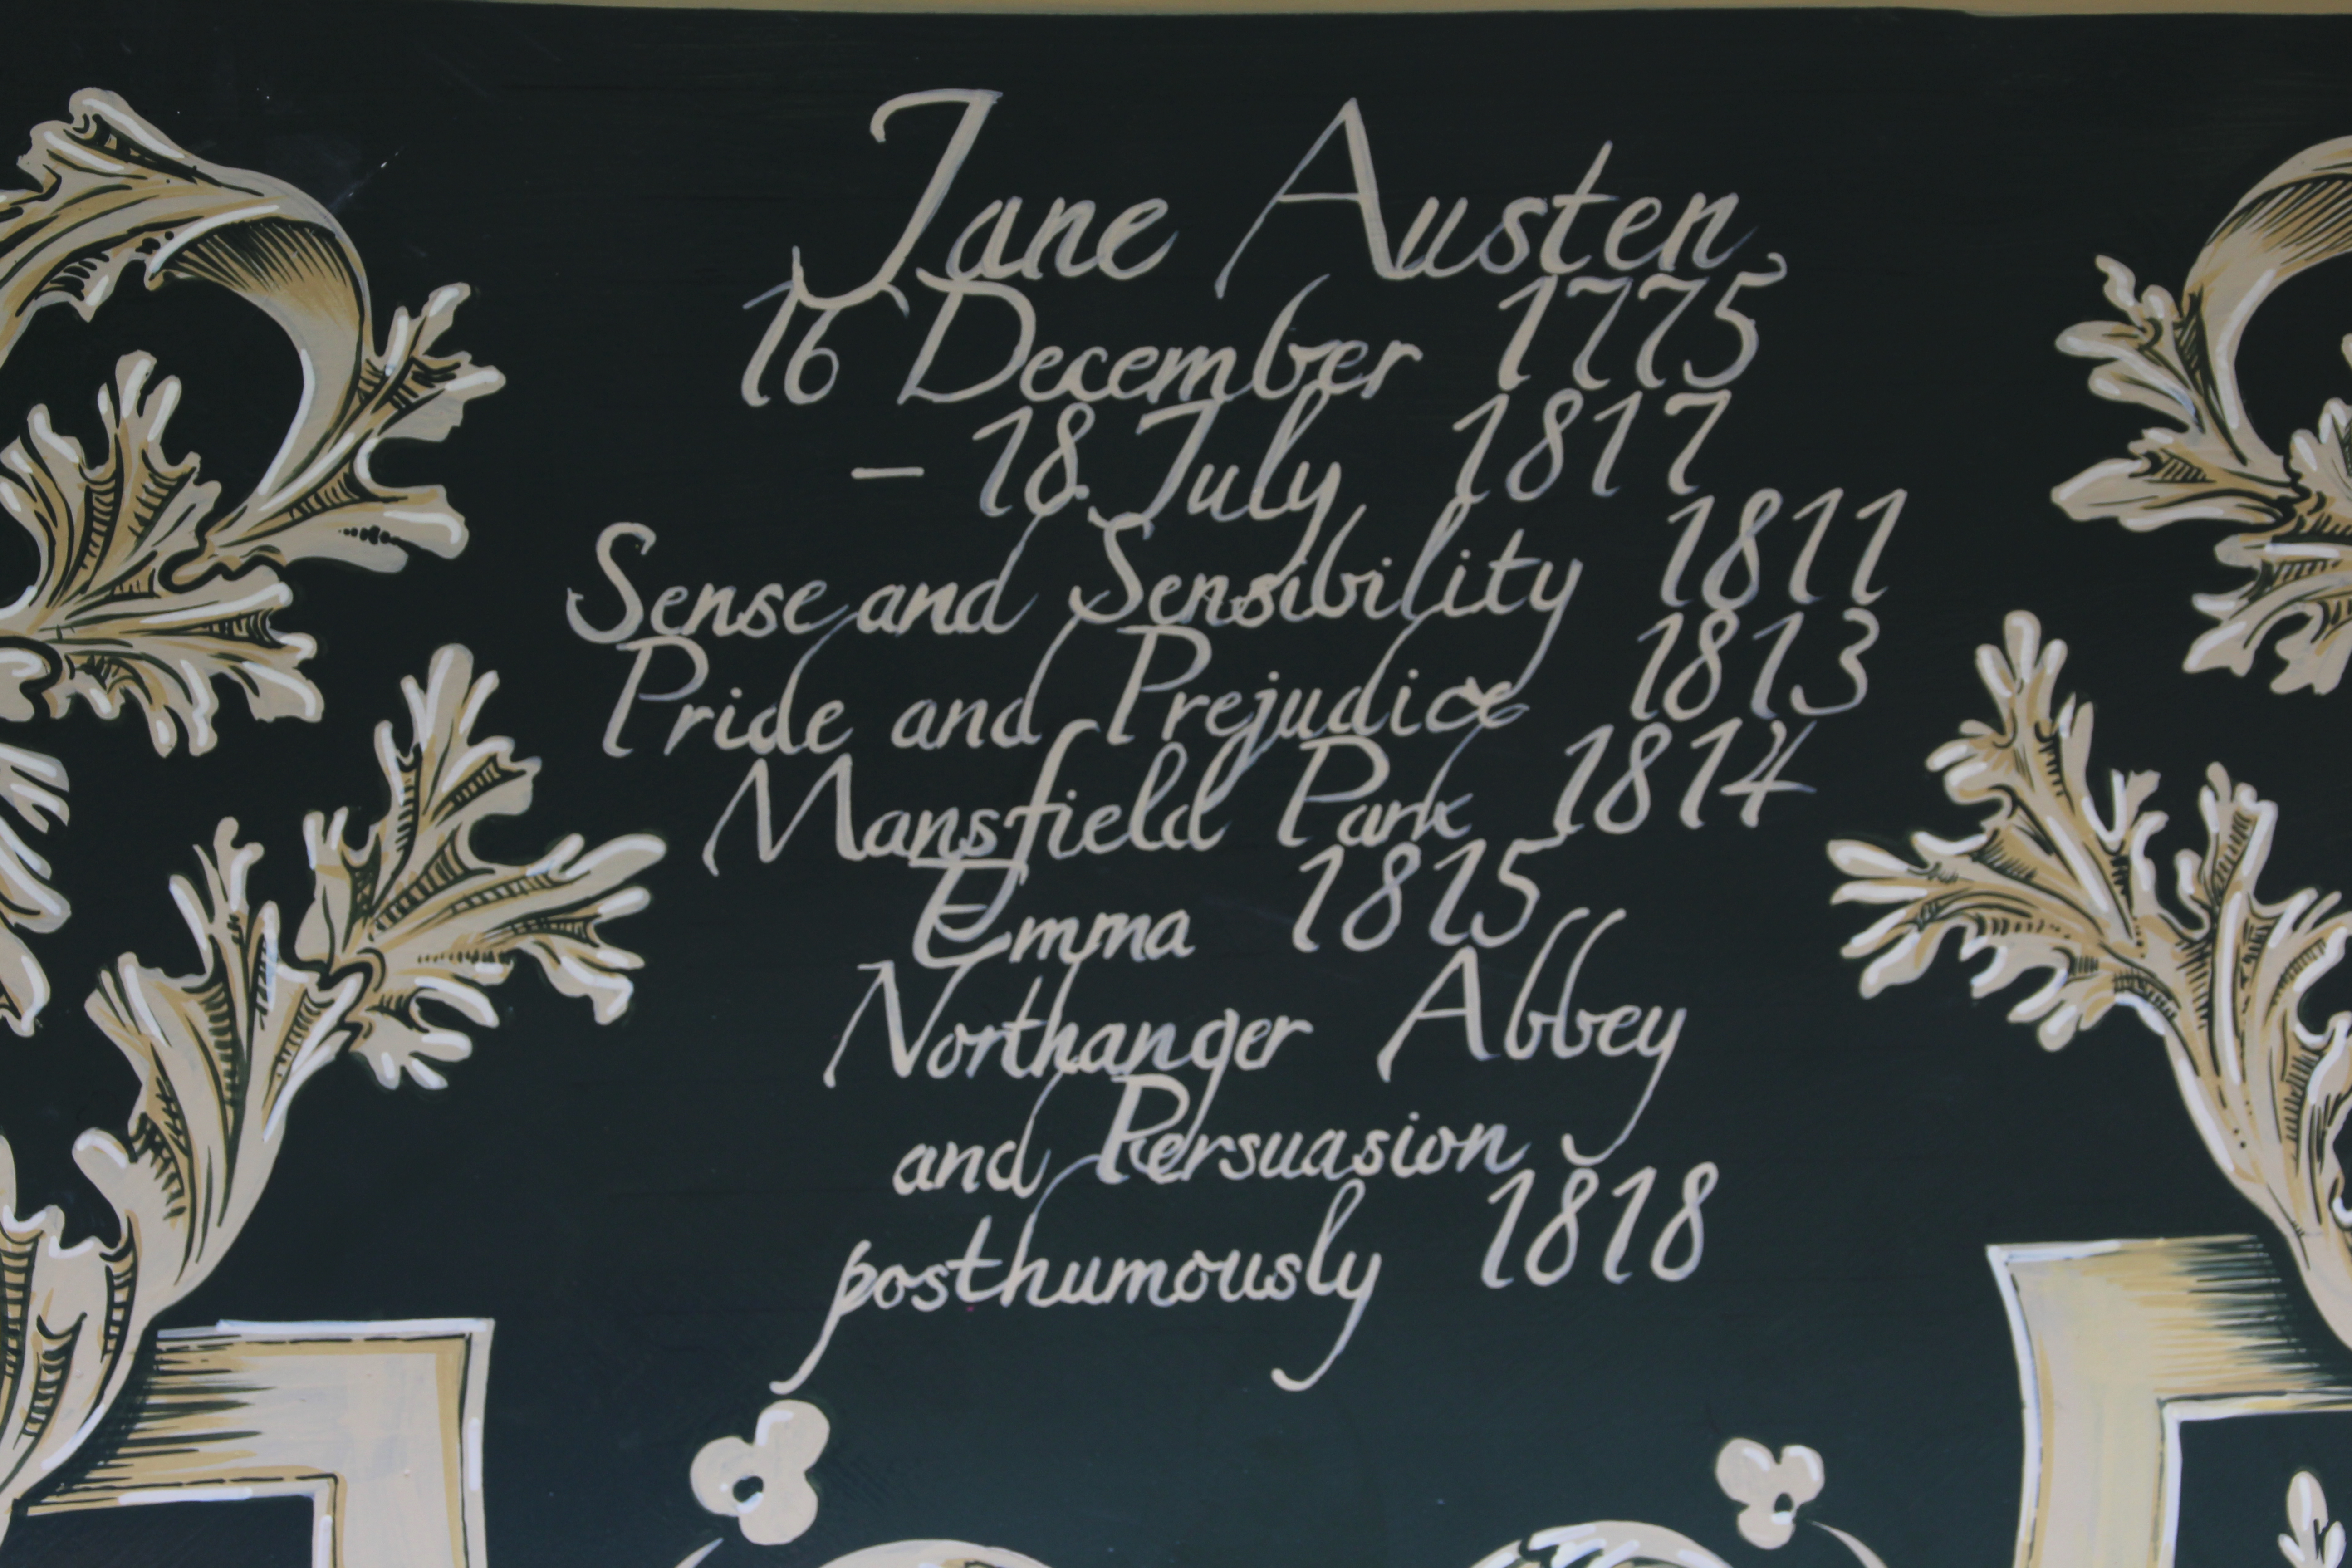 Jane Austen,
16 December 1775
– 18 July 1817
Sense and Sensibility 1811
Pride and Prejudice 1813
Mansfield Park 1814
Emma 1815
Northanger Abbey
and Persuasion
posthumously 1818